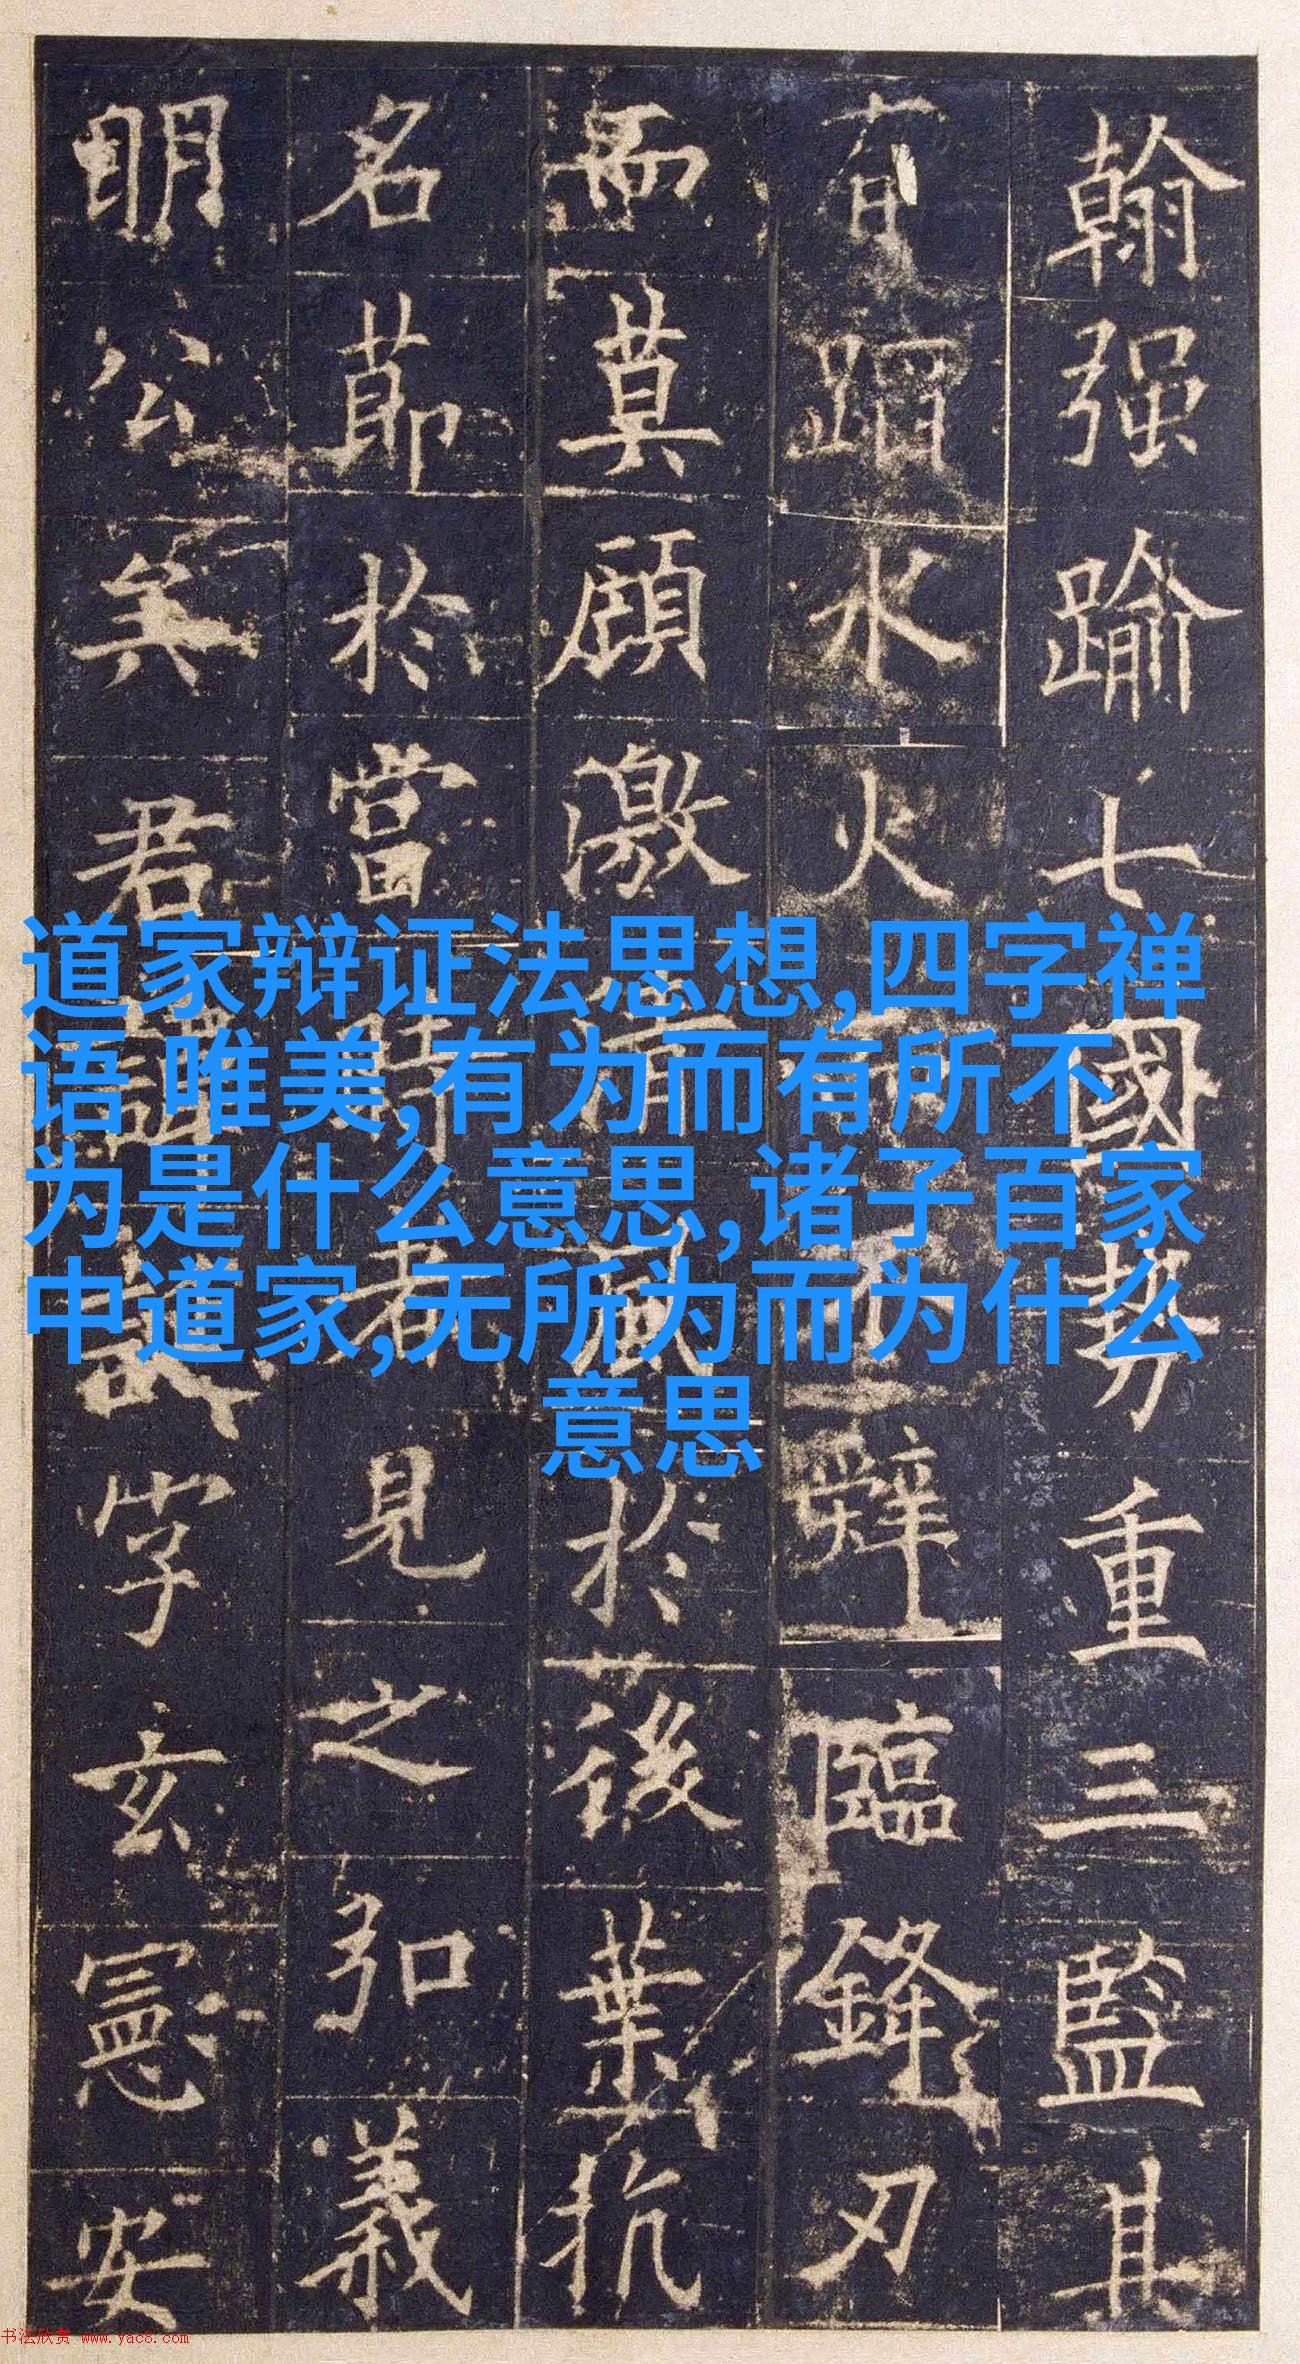 翰强踰七國勢重三監其
有蹈水火而不辭臨鋒刃
而莫顧激清風於後葉抗
名節於當時者見之弘義
明公矣君諱誕字玄憲安
道家辩证法思想,四字禅
语 唯美,有为而有所不
为是什么意思,诸子百家
中道家,无所为而为什么
意思
书法欣赏 www.yac8.com